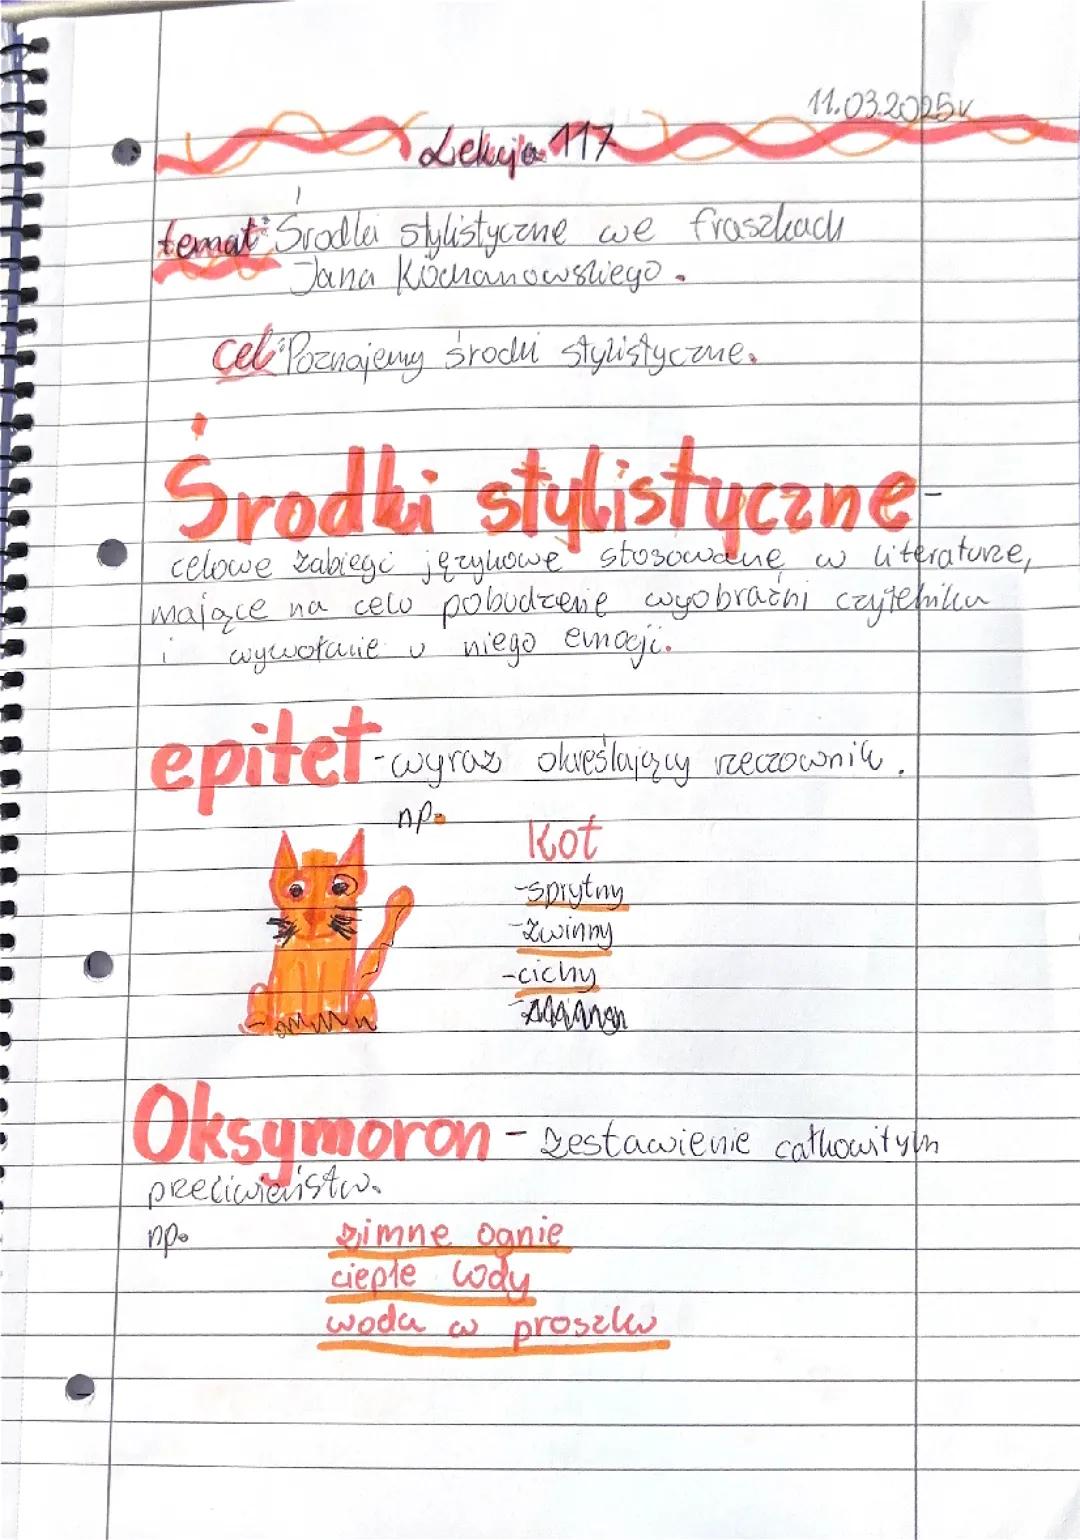 11.03.2025r
Lekcja 117
temat: Środki stylistyczne we fraszkach
Jana Kochanowskiego.
cel: Poznajemy środki stylistyczne.
Środki stylistyczne-
celowe zabiegi językowe stosowane w literaturze,
mające na celu pobudzenie wyobraźni czytelnika
i wywołanie u niego emocji.
epitet - wyraz określający rzeczownik.
np.
Kot
-sprytny
-zwinny
-cichy
Oksymoron - zestawienie całkowitym
przeciwieństw.
np. zimne ognie
ciepłe lody
woda w proszku